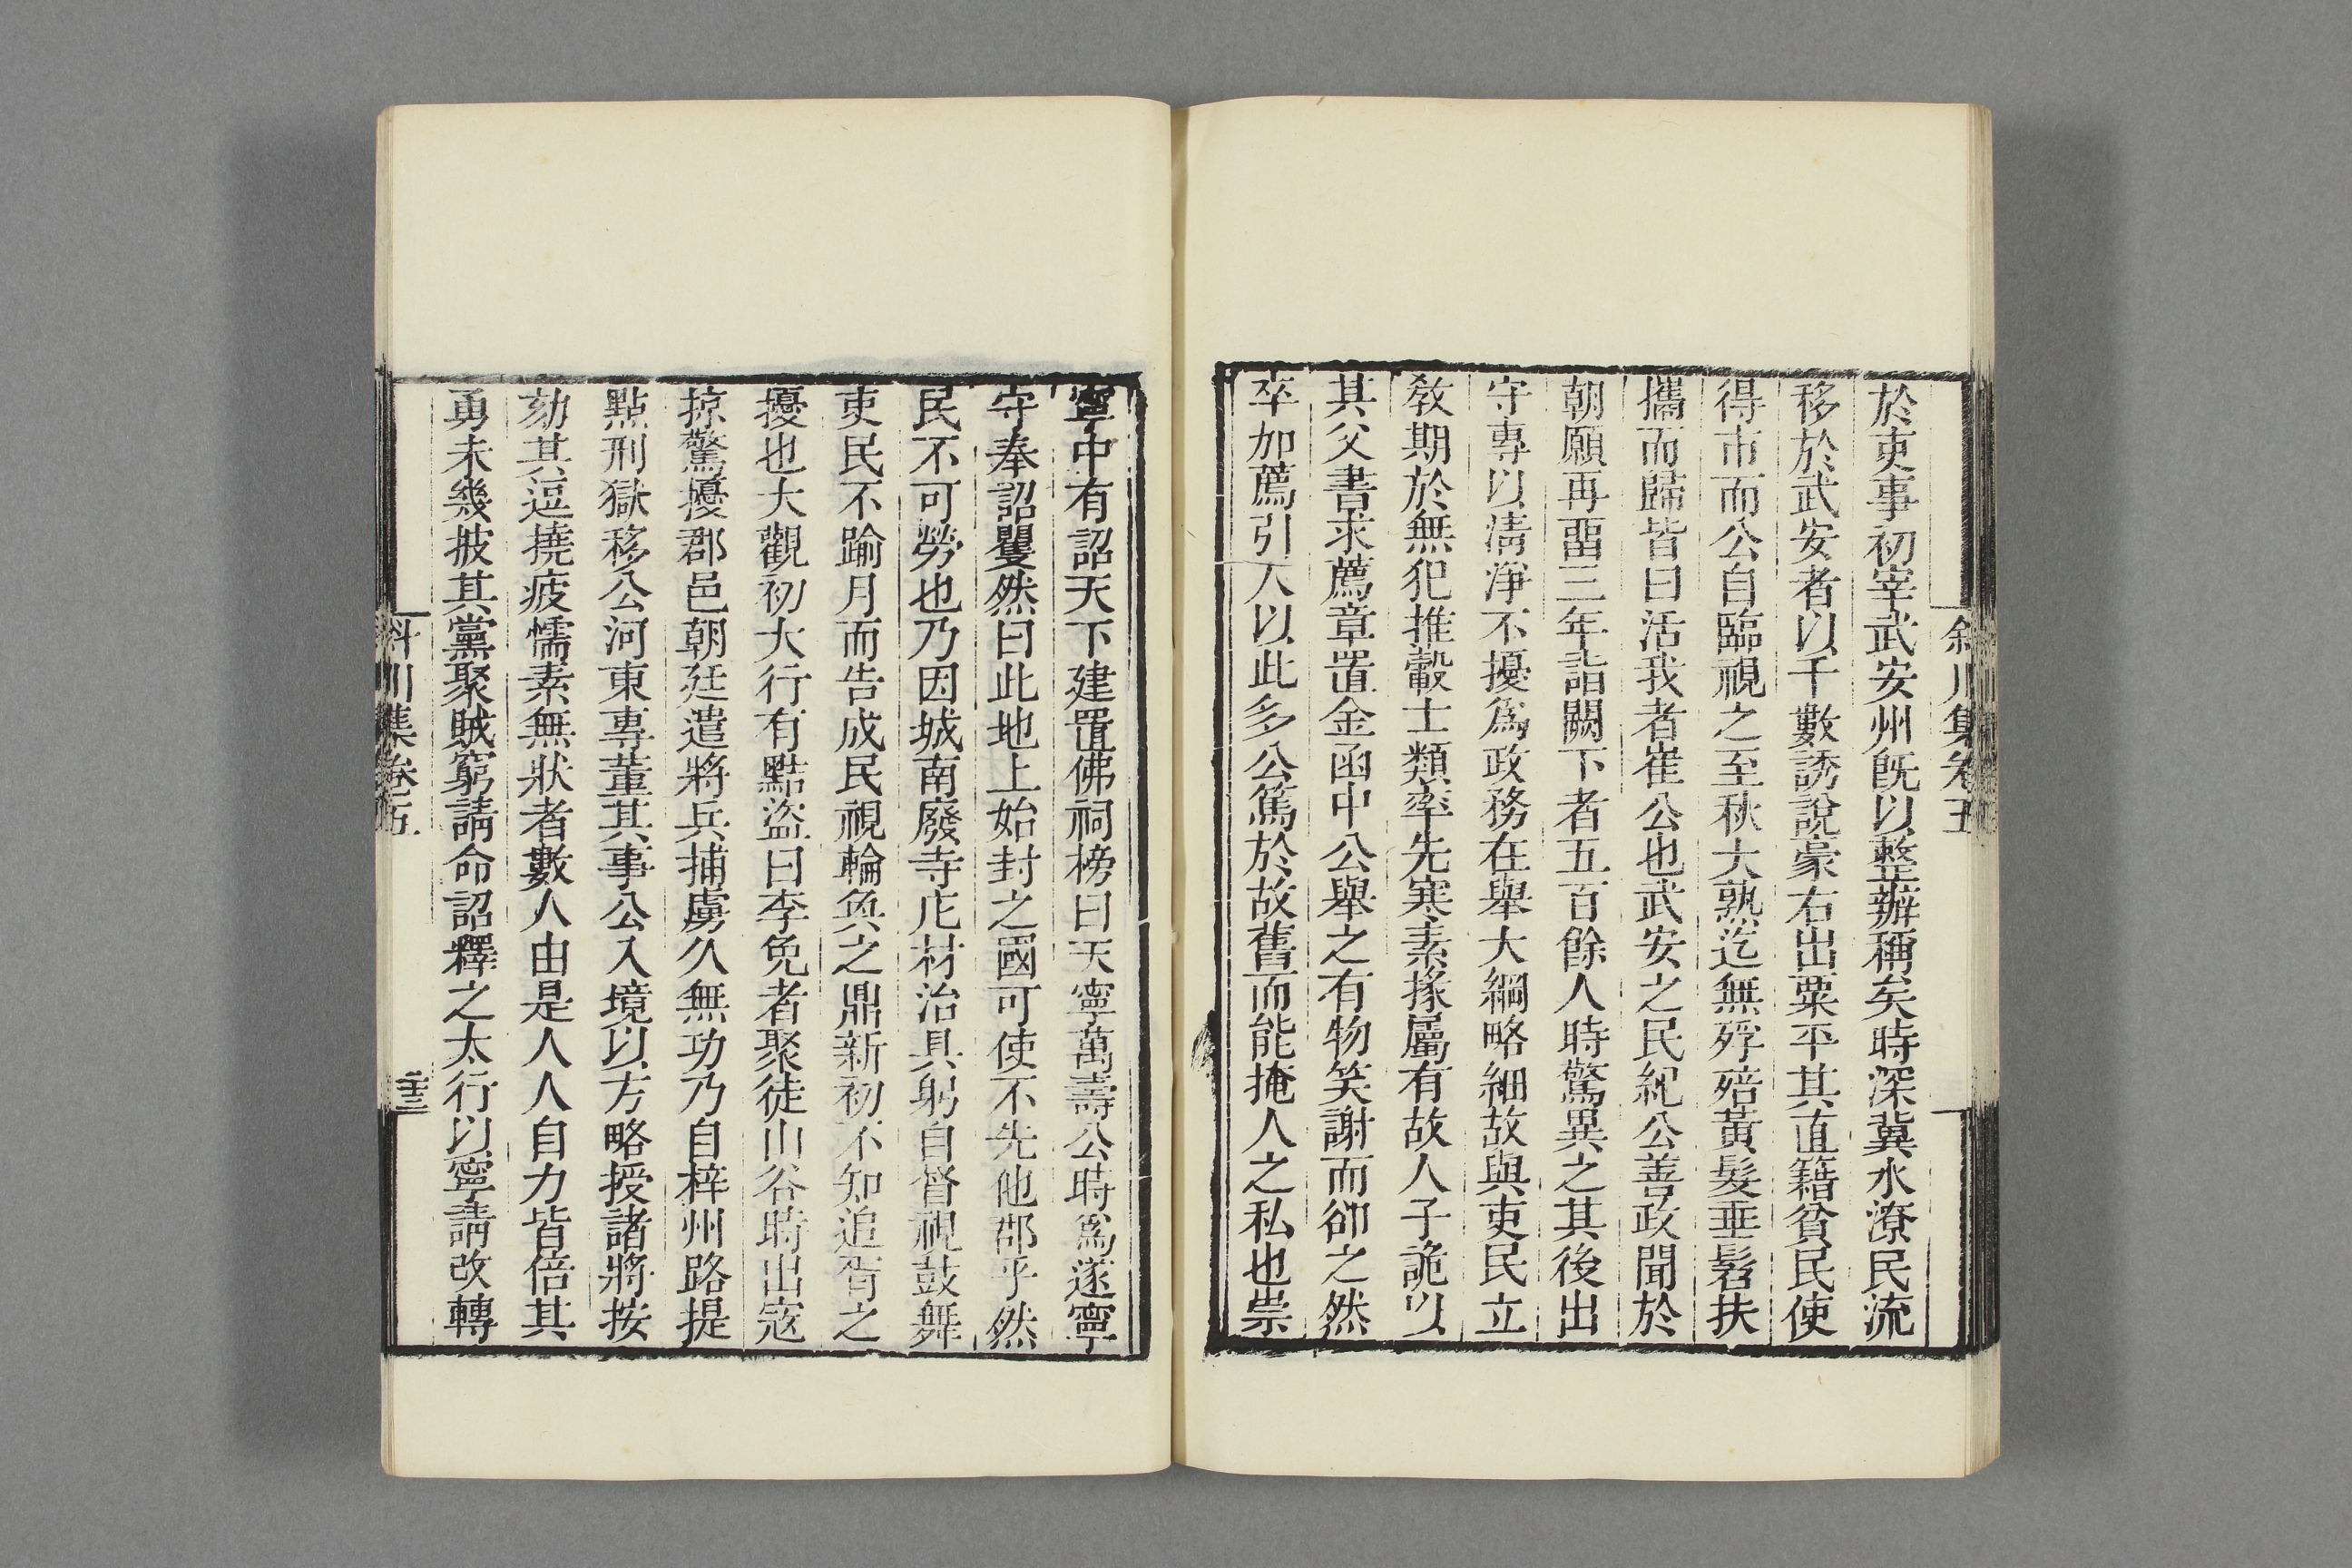 斜川集卷五
於吏事初宰武安州既以整辦稱矣時深冀水潦民流
移於武安者以千數誘說豪右出粟平其直籍貧民使
得市而公自臨視之至秋大熟迄無殍殕黃髮垂髫扶
攜而歸皆曰活我者崔公也武安之民紀公善政聞於
朝願再畱三年詣闕下者五百餘人時驚異之其後出
守專以淸淨不擾爲政務在舉大綱略細故與吏民立
敎期於無犯推轂士類率先寒素掾屬有故人子詭以
其父書求薦章置金函中公舉之有物笑謝而卻之然
卒加薦引人以此多公篤於故舊而能掩人之私也崇
寧中有詔天下建置佛祠榜曰天寧萬壽公時爲遂寧
守奉詔瞿然曰此地上始封之國可使不先他郡乎然
民不可勞也乃因城南廢寺庀材治具躬自督視鼓舞
吏民不踰月而告成民視輪奐之鼎新初不知追胥之
擾也大觀初大行有黠盜曰李免者聚徒山谷時出寇
掠驚擾郡邑朝廷遣將兵捕虜久無功乃自梓州路提
點刑獄移公河東專董其事公入境以方略授諸將按
劾其逗撓疲懦素無狀者數人由是人人自力皆倍其
勇未幾披其黨聚賊窮請命詔釋之太行以寧請改轉
斜川集卷五